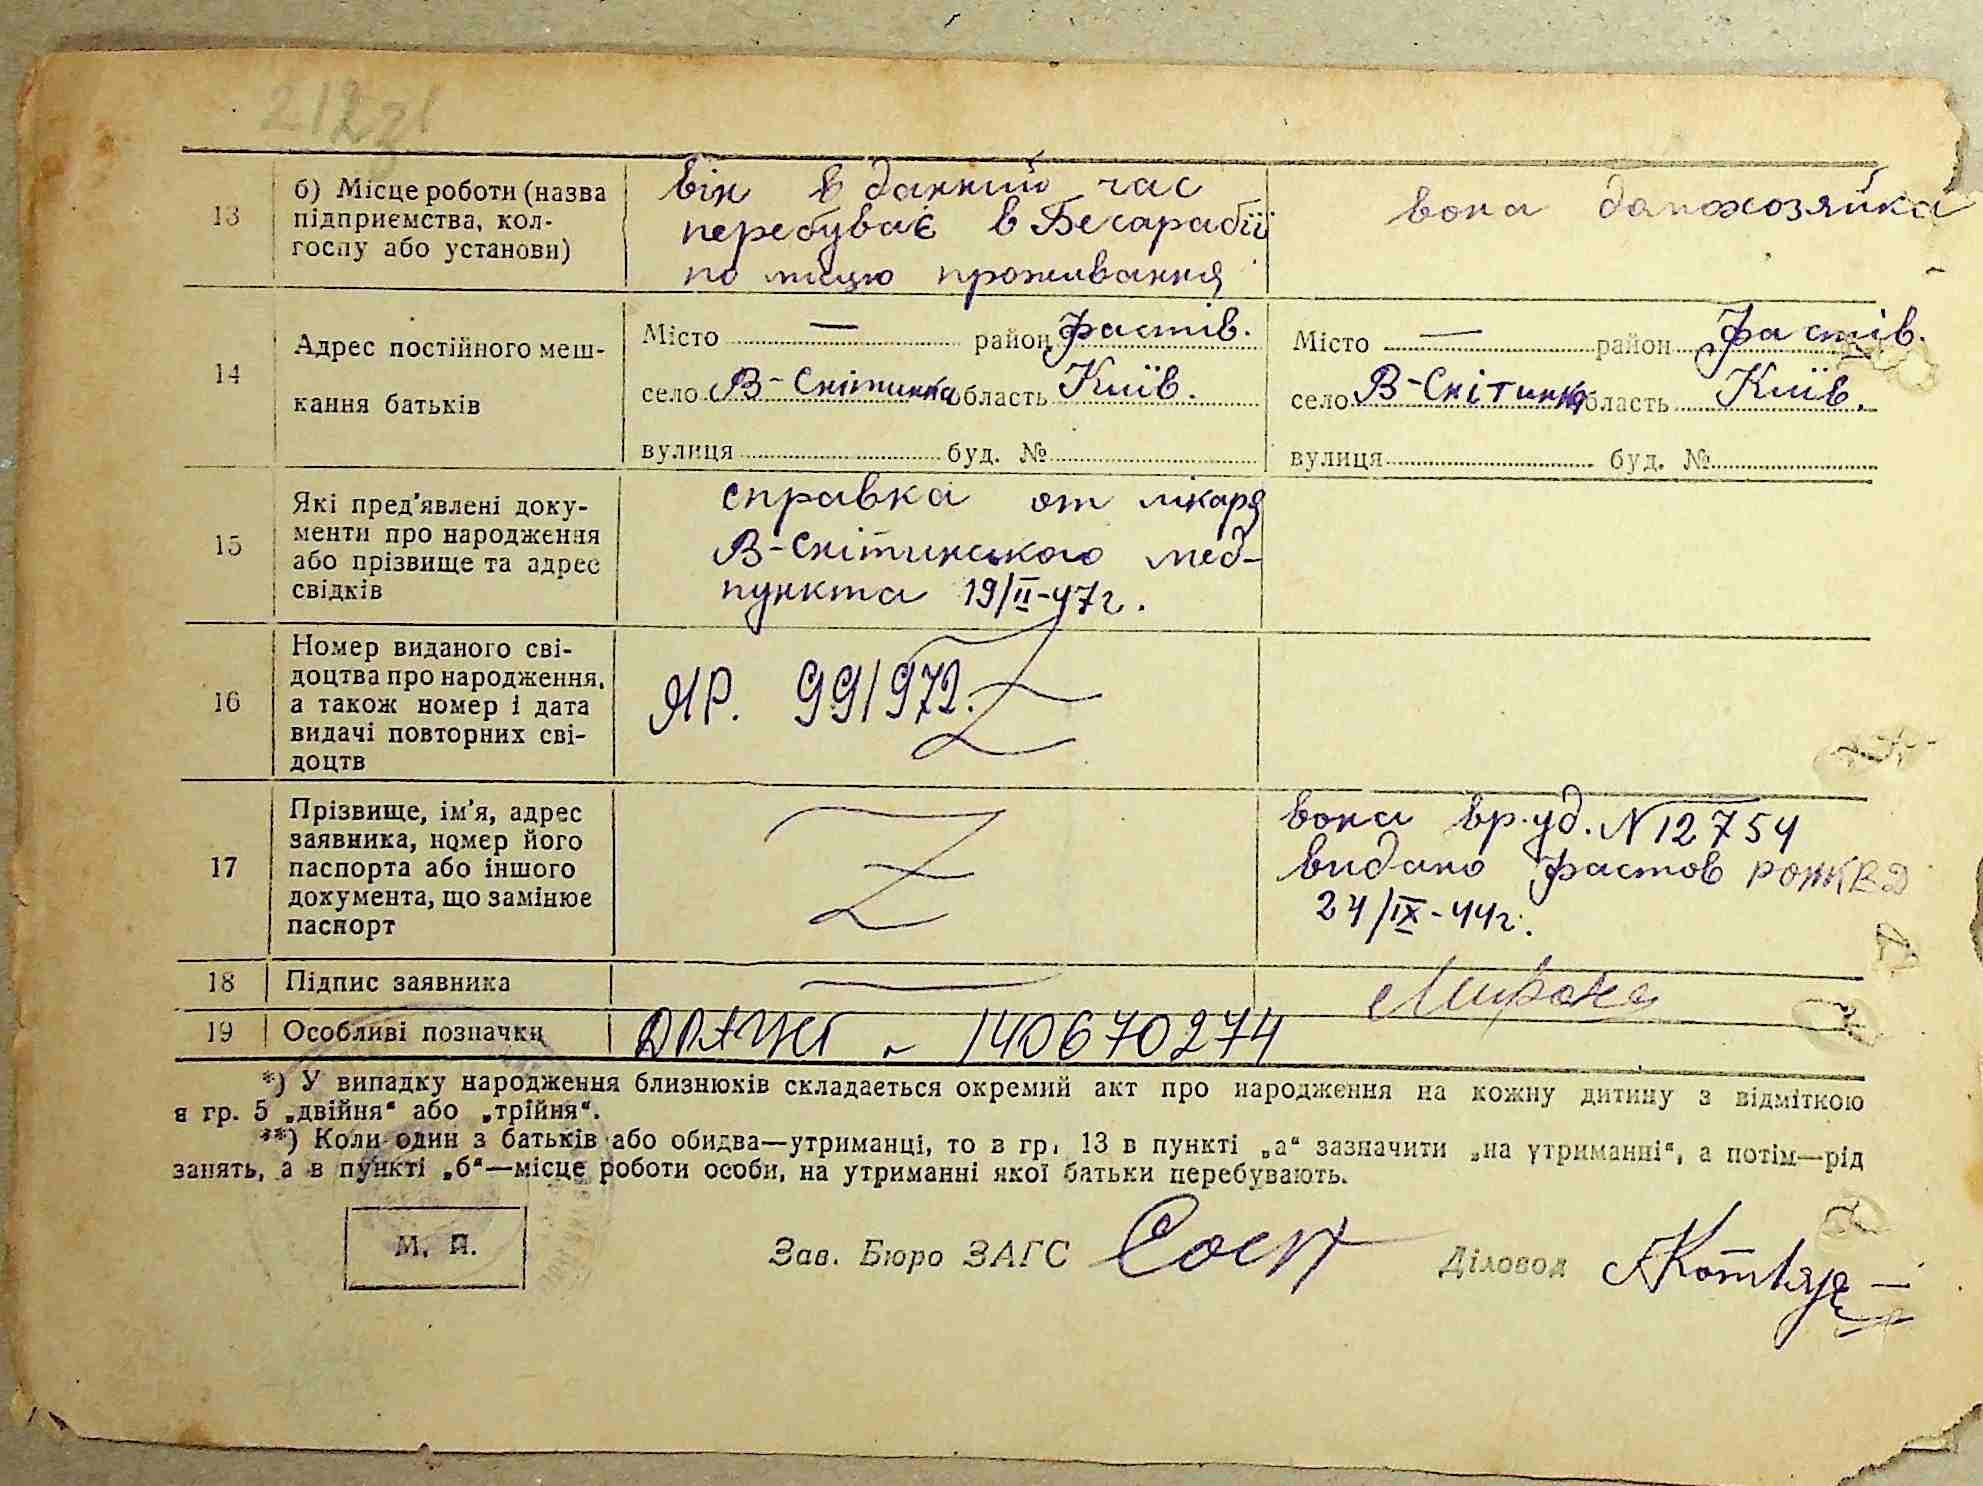 212з1
13 б) Місце роботи (назва підприємства, кол-госпу або установи)
він в данний час
перебуває в Бесарабії
по місцю проживання
вона домохозяйка
14 Адрес постійного меш-
кання батьків
Місто — район Фастів.
село В-Снітинка область Київ.
вулиця буд. №
Місто — район Фастів.
село В-Снітинка область Київ.
вулиця буд. №
15 Які пред'явлені доку-
менти про народження
або прізвище та адрес
свідків
справка от лікаря
В-Снітинського мед-
пункта 19/II-47г.
16 Номер виданого сві-
доцтва про народження,
а також номер і дата
видачі повторних сві-
доцтв
ЯР. 991972.
17 Прізвище, ім'я, адрес
заявника, номер його
паспорта або іншого
документа, що замінює
паспорт
вона вр.уд. N12754
видано Фастов РОНКВД
24/IX-44г.
18 Підпис заявника
19 Особливі позначки
140670274
*) У випадку народження близнюків складається окремий акт про народження на кожну дитину з відміткою
в гр. 5 „двійня“ або „трійня“.
**) Коли один з батьків або обидва—утриманці, то в гр. 13 в пункті „а“ зазначити „на утриманні“, а потім—рід
занять, а в пункті „б“—місце роботи особи, на утриманні якої батьки перебувають.
М. П.
Зав. Бюро ЗАГС
Діловод